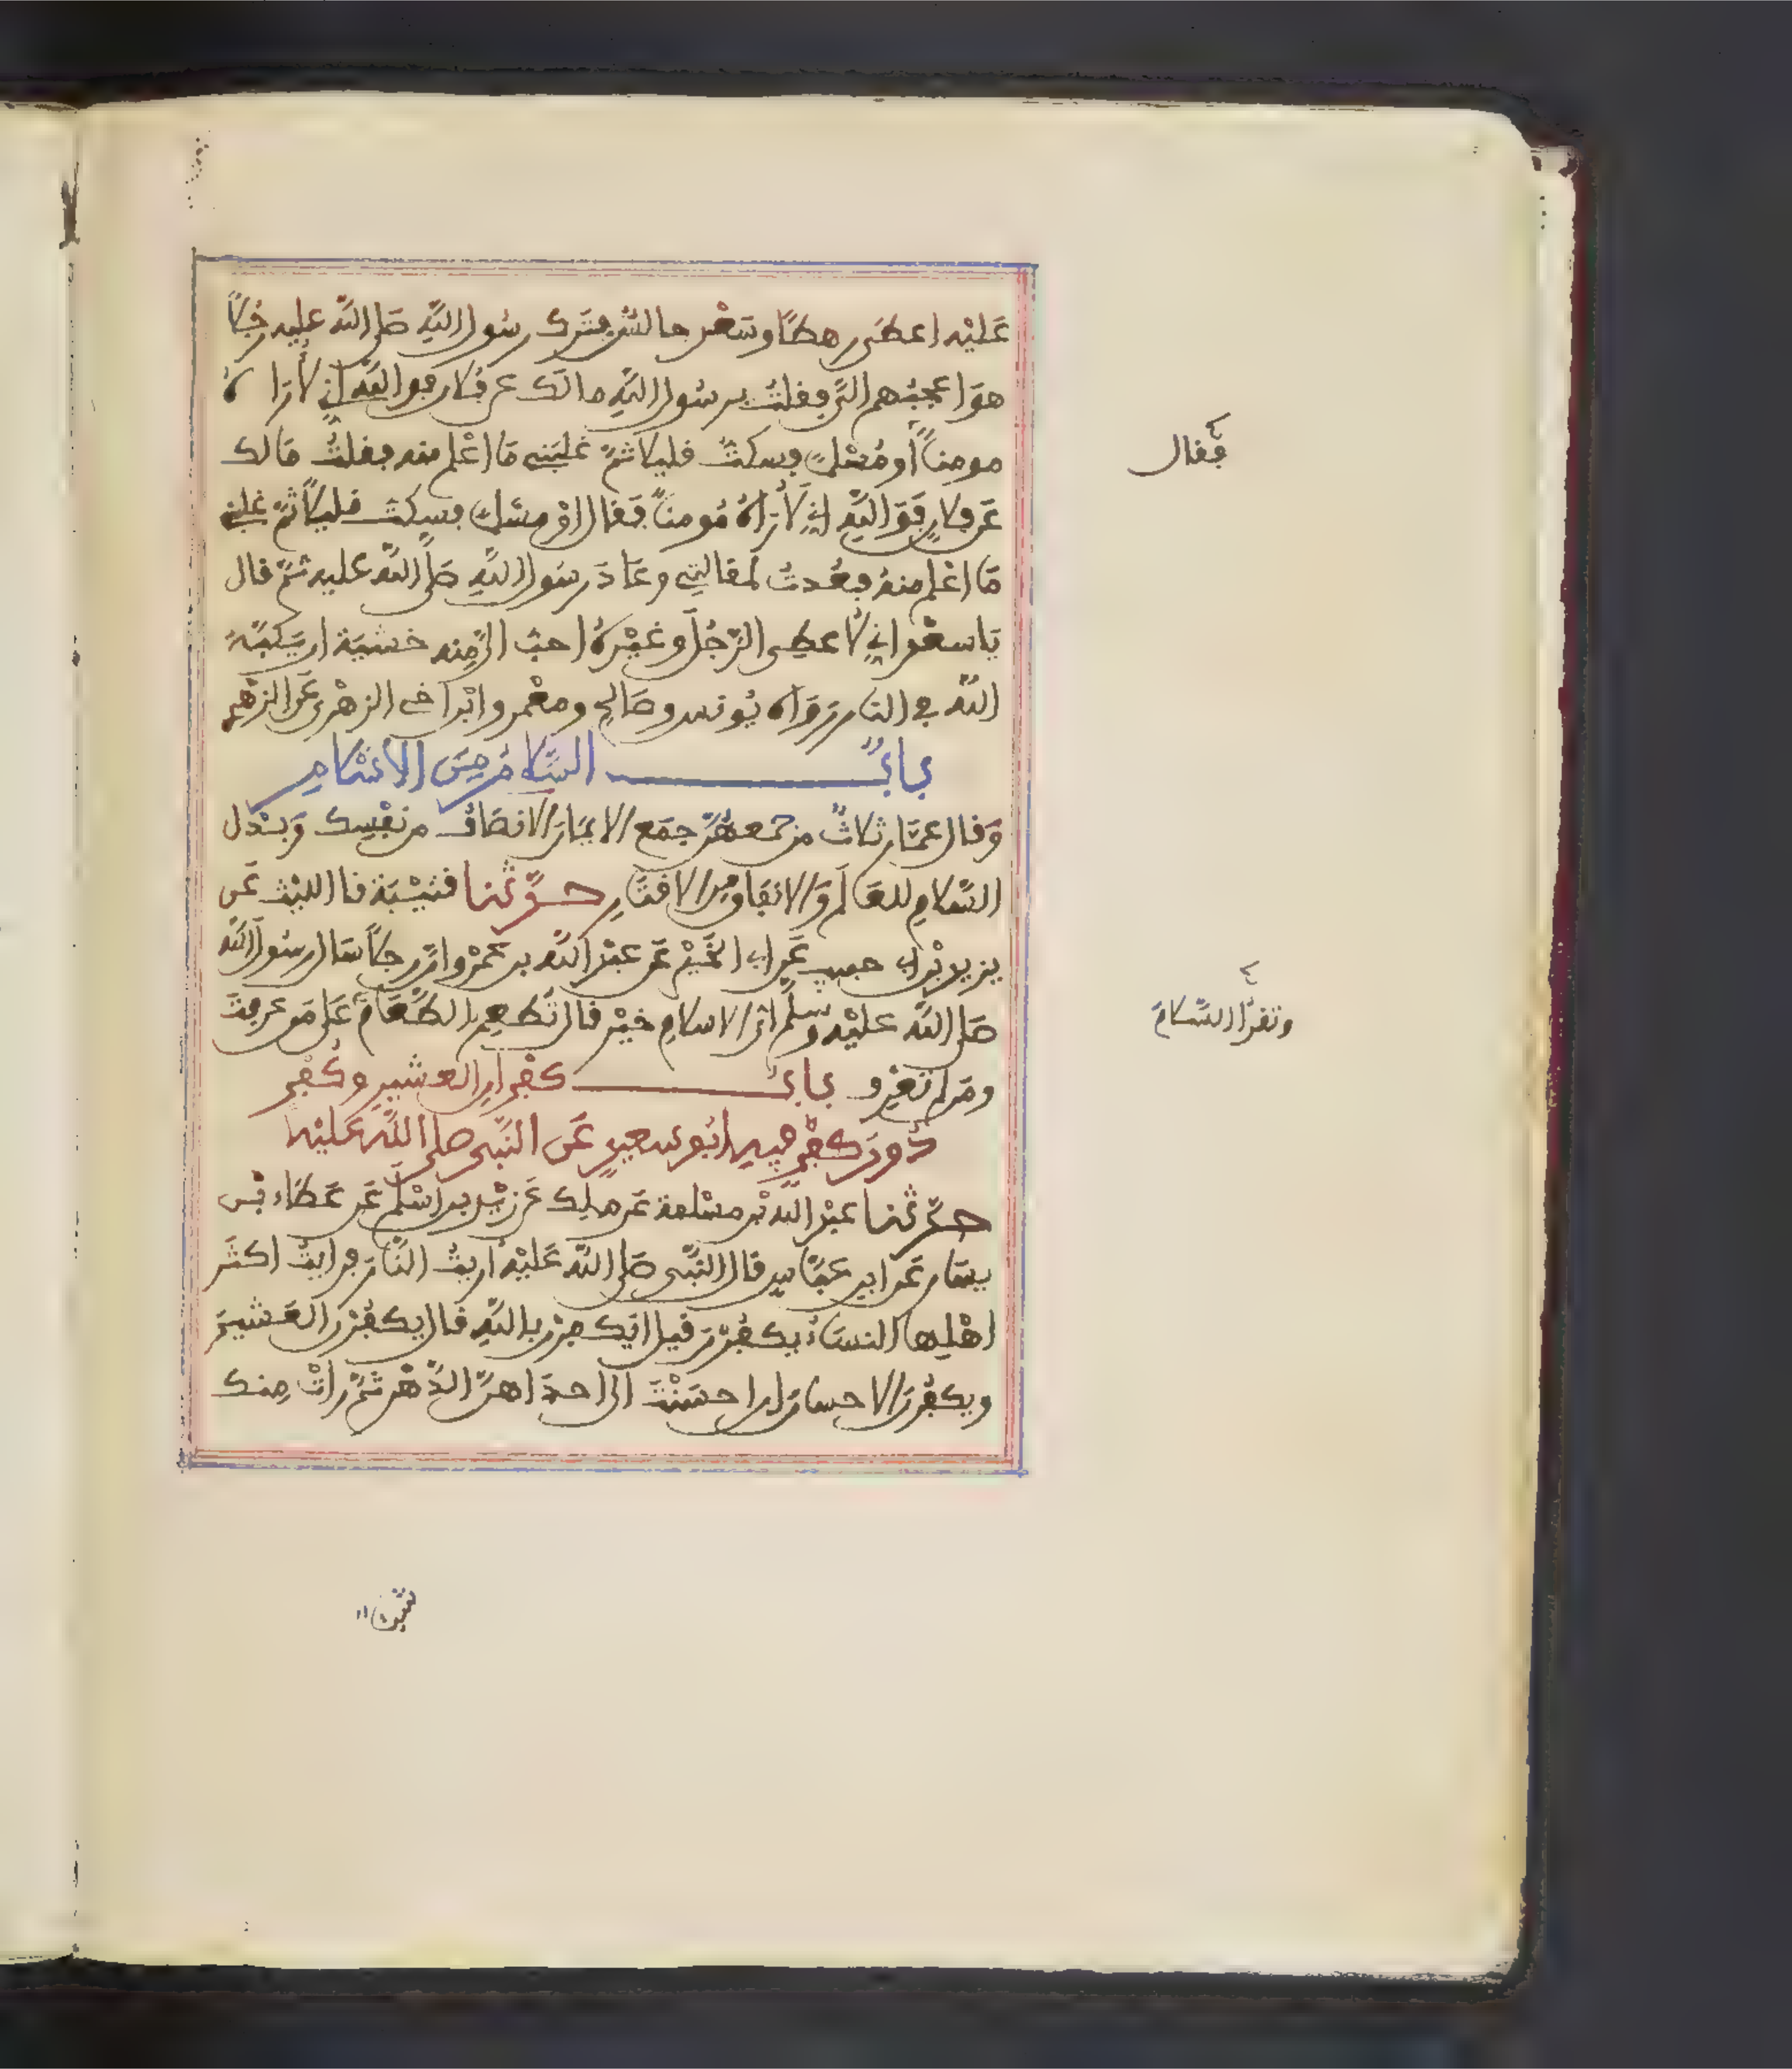 عَلَيْه اعطَى رهطًا وسَعْد جالسٌ فترك رسُول اللَّهِ صَلى اللَّه عليه رجُلًا
هوَ اعجبُهم الىَّ فقلتُ يرسُول اللَّهِ مالَك عن فُلان فو اللَّه انِّي لأُرَاهُ
مومنًا أو مُسْلمًا فسكتُّ قليلا ثمَّ غلبَني مَا اعْلم منه فقلتُ مَالك
عَن فلانٍ فَوَ اللَّهِ انِّي لأُرَاهُ مُومنًا فَقال اوْ مسْلمًا فسكتّ قليلًا ثمَّ غلبني
مَا اعْلم منهُ فعُدتُ لمقالتِي وعَادَ رسُول اللَّهِ صَلَّى اللَّه عليه ثمَّ قال
يَا سعْد انِّي لأعطِى الرَّجُلَ وغَيْرهُ احبّ الىَّ مِنه خشيَة ان يَكبَّهُ
اللَّه في النار رَوَاه يُونس وصَالح ومعْمر وابْن اخى الزهْرى عَن الزهْرِى
بابُ السَّلامُ مِنَ الاسْلامِ
وَقال عمَّار ثلاثٌ من جمعهُنَّ جمَع الايمَانَ الانصَافُ من نفْسِك وَبَذل
السَّلامِ للعَالَم وَالانفَاق مِن الاقتَارِ حدَّثنا قتيْبَة نا الليْث عَن
يزيد بْن ابى حبيب عَن ابى الخَيْر عَن عبْد اللَّه بن عَمْرو انَّ رجُلًا سَال رسُولَ اللَّه
صَلى اللَّه عليْه وسَلَّم اىُّ الاسلامِ خيْر قال تُطعِم الطَّعَامَ عَلى مَن عرفتَ
ومَن لم تعْرِف بابُ كفْرانِ العشيرِ وكُفْرٍ
دُونَ كفْرٍ فيه ابُو سعيدٍ عَن النَّبِى صلى اللَّه عَليْه
حدَّثنا عبْد اللَّه بْن مسْلمة عَن مٰلِك عَن زيْد بن اسْلَم عَن عَطَاء بْن
يسَار عَن ابن عبَّاسٍ قال النَّبى صَلى اللَّه عَليْه اريتُ النَّارَ فرايتُ اكثَر
اهْلِها النسَاءُ يكفُرْنَ قيل ايَكفرْن باللَّهِ قال يكفُرْن العَشيرَ
ويكفُرنَ الاحسانَ لو احسَنْتَ الى احدَاهنَّ الدَّهْر ثمَّ رأتْ مِنك
فَقال
وتقرَأ السَّلامَ